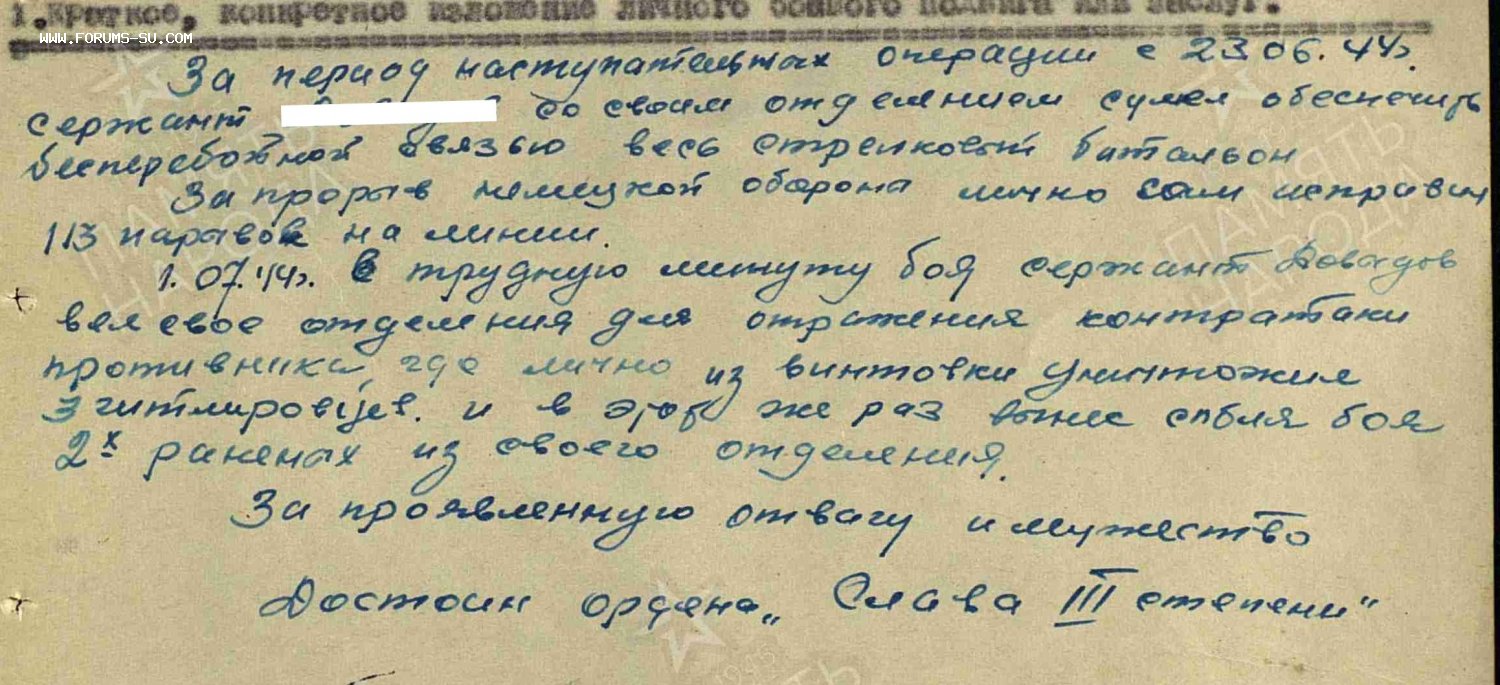 1. Краткое, конкретное изложение личного боевого подвига или заслуг.
WWW.FORUMS-SU.COM
За период наступательных операции с 23.06.44г.
сержант со своим отделением сумел обеспечить
бесперебойной связью весь стрелковый батальон
За прорыв немецкой оборона лично сам исправил
113 порывов на линии.
1.07.44г. в трудную минуту боя сержант Довадов
вел свое отделения для отражения контратаки
противника, где лично из винтовки уничтожил
3 гитлировцев. и в этот же раз вынес с поля боя
2х раненых из своего отделения.
За проявленную отвагу и мужество
Достоин ордена „Слава III степени"
ПАМЯТЬ НАРОДА
ПАМЯТЬ НАРОДА